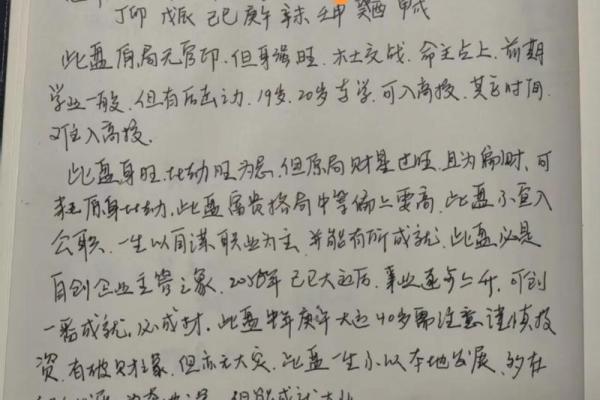 丁卯 戊辰 己巳 庚午 辛未 壬申 癸酉 甲戌
此盘原局无官印,但身强旺,木土交战,命主占上,前期
学业一般,但有后劲之力,19岁,20岁考学,可入高校,其它时间
难入高校.
此盘身旺,比劫旺为忌,但原局财星过旺,且为偏财,可
耗原身比劫,此盘富贵格局中等偏上要高,此盘不宜入
公职,一生以自谋职业为主,并能有所成就,此盘必是
自创企业主管之象,己巳大运后,事业逐步上升,可创
一番成就,必成才,此盘中年庚午大运40岁需注意谨慎投
资,有破财之象,但亦无大灾,此盘一生不以本地发展,